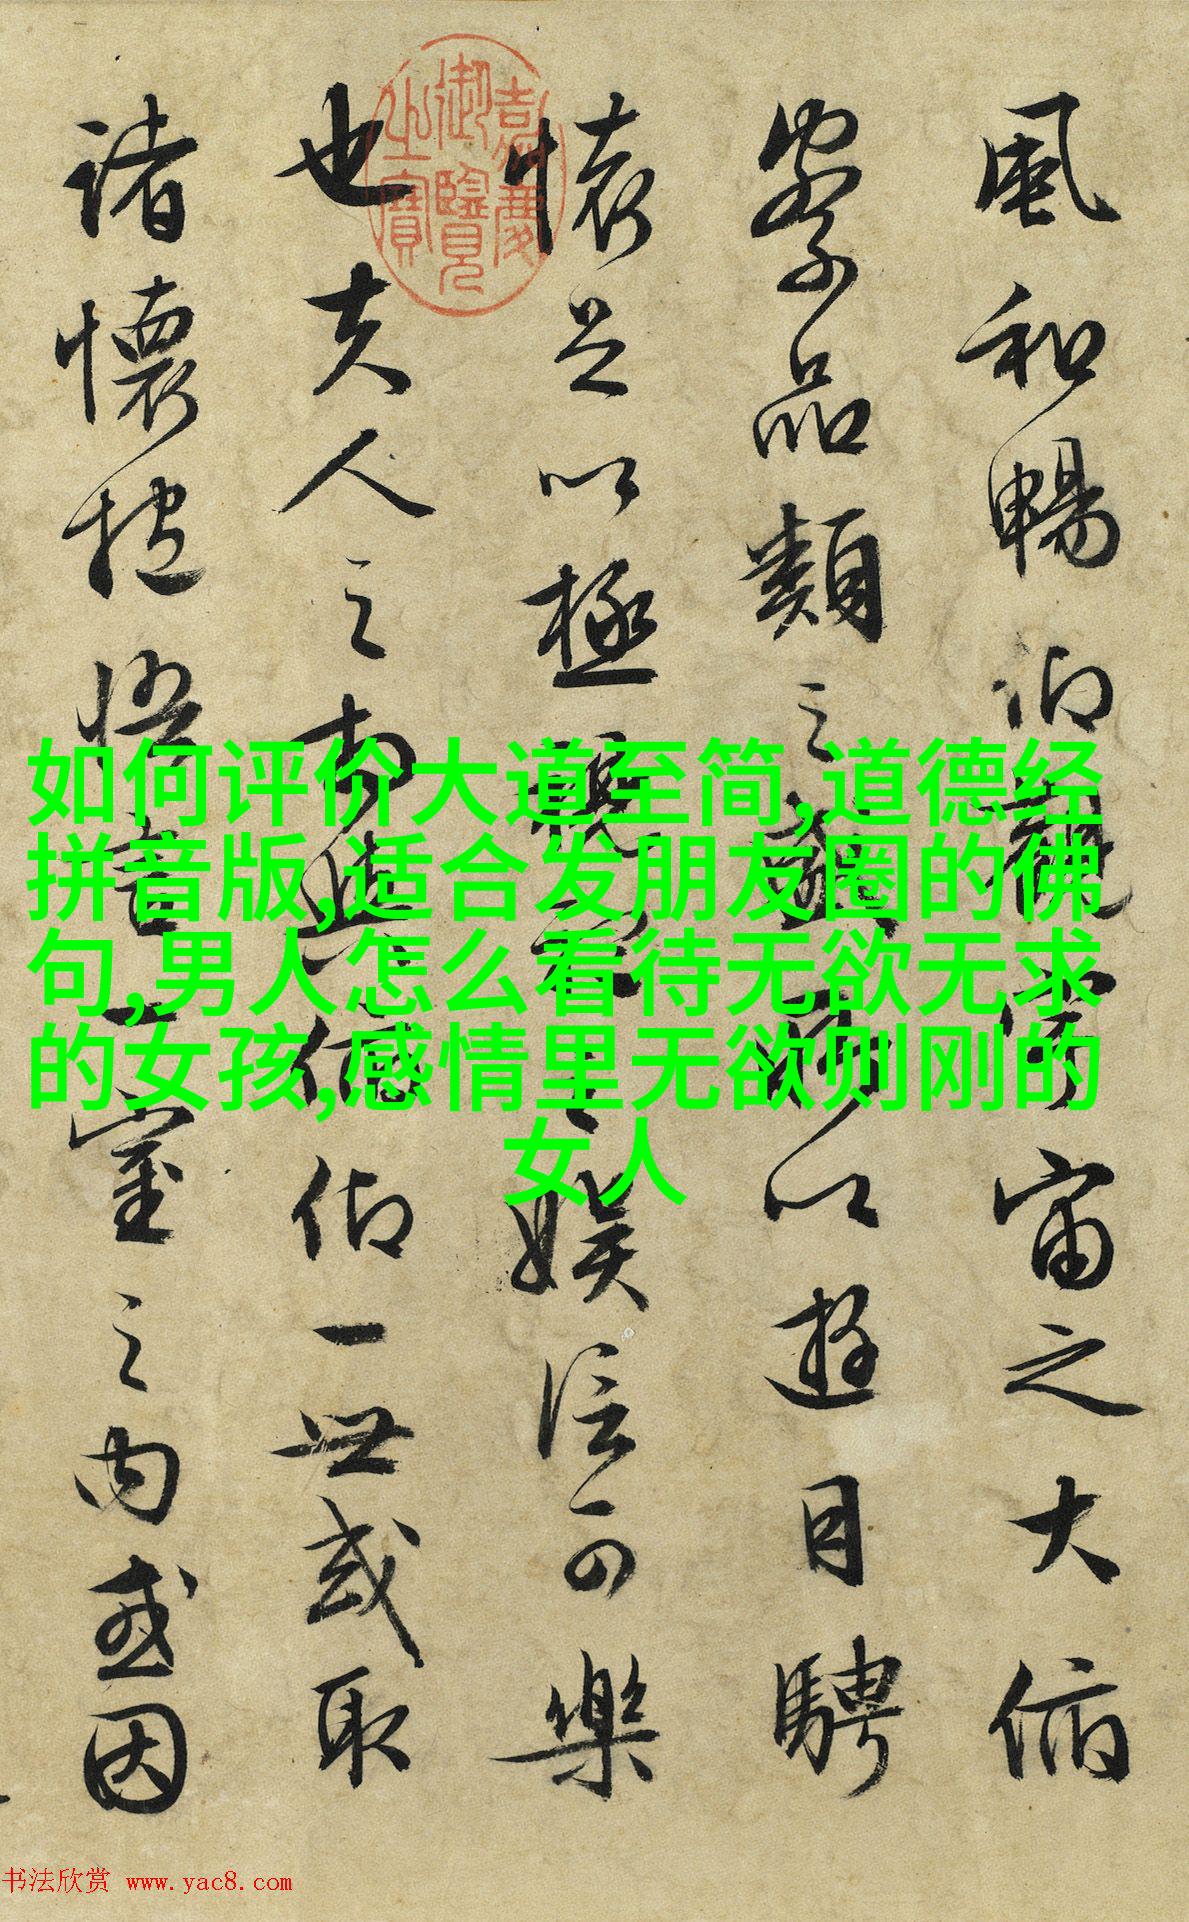 風和暢仰觀宇宙之大俯
察品類之盛所以遊目騁
懷足以極視聽之娛信可樂
也夫人之相與俯仰一世或取
諸懷抱悟言一室之內或因
嘉慶
御覽
之寶
如何评价大道至简,道德经
拼音版,适合发朋友圈的佛
句,男人怎么看待无欲无求
的女孩,感情里无欲则刚的
女人
书法欣赏 www.yac8.com